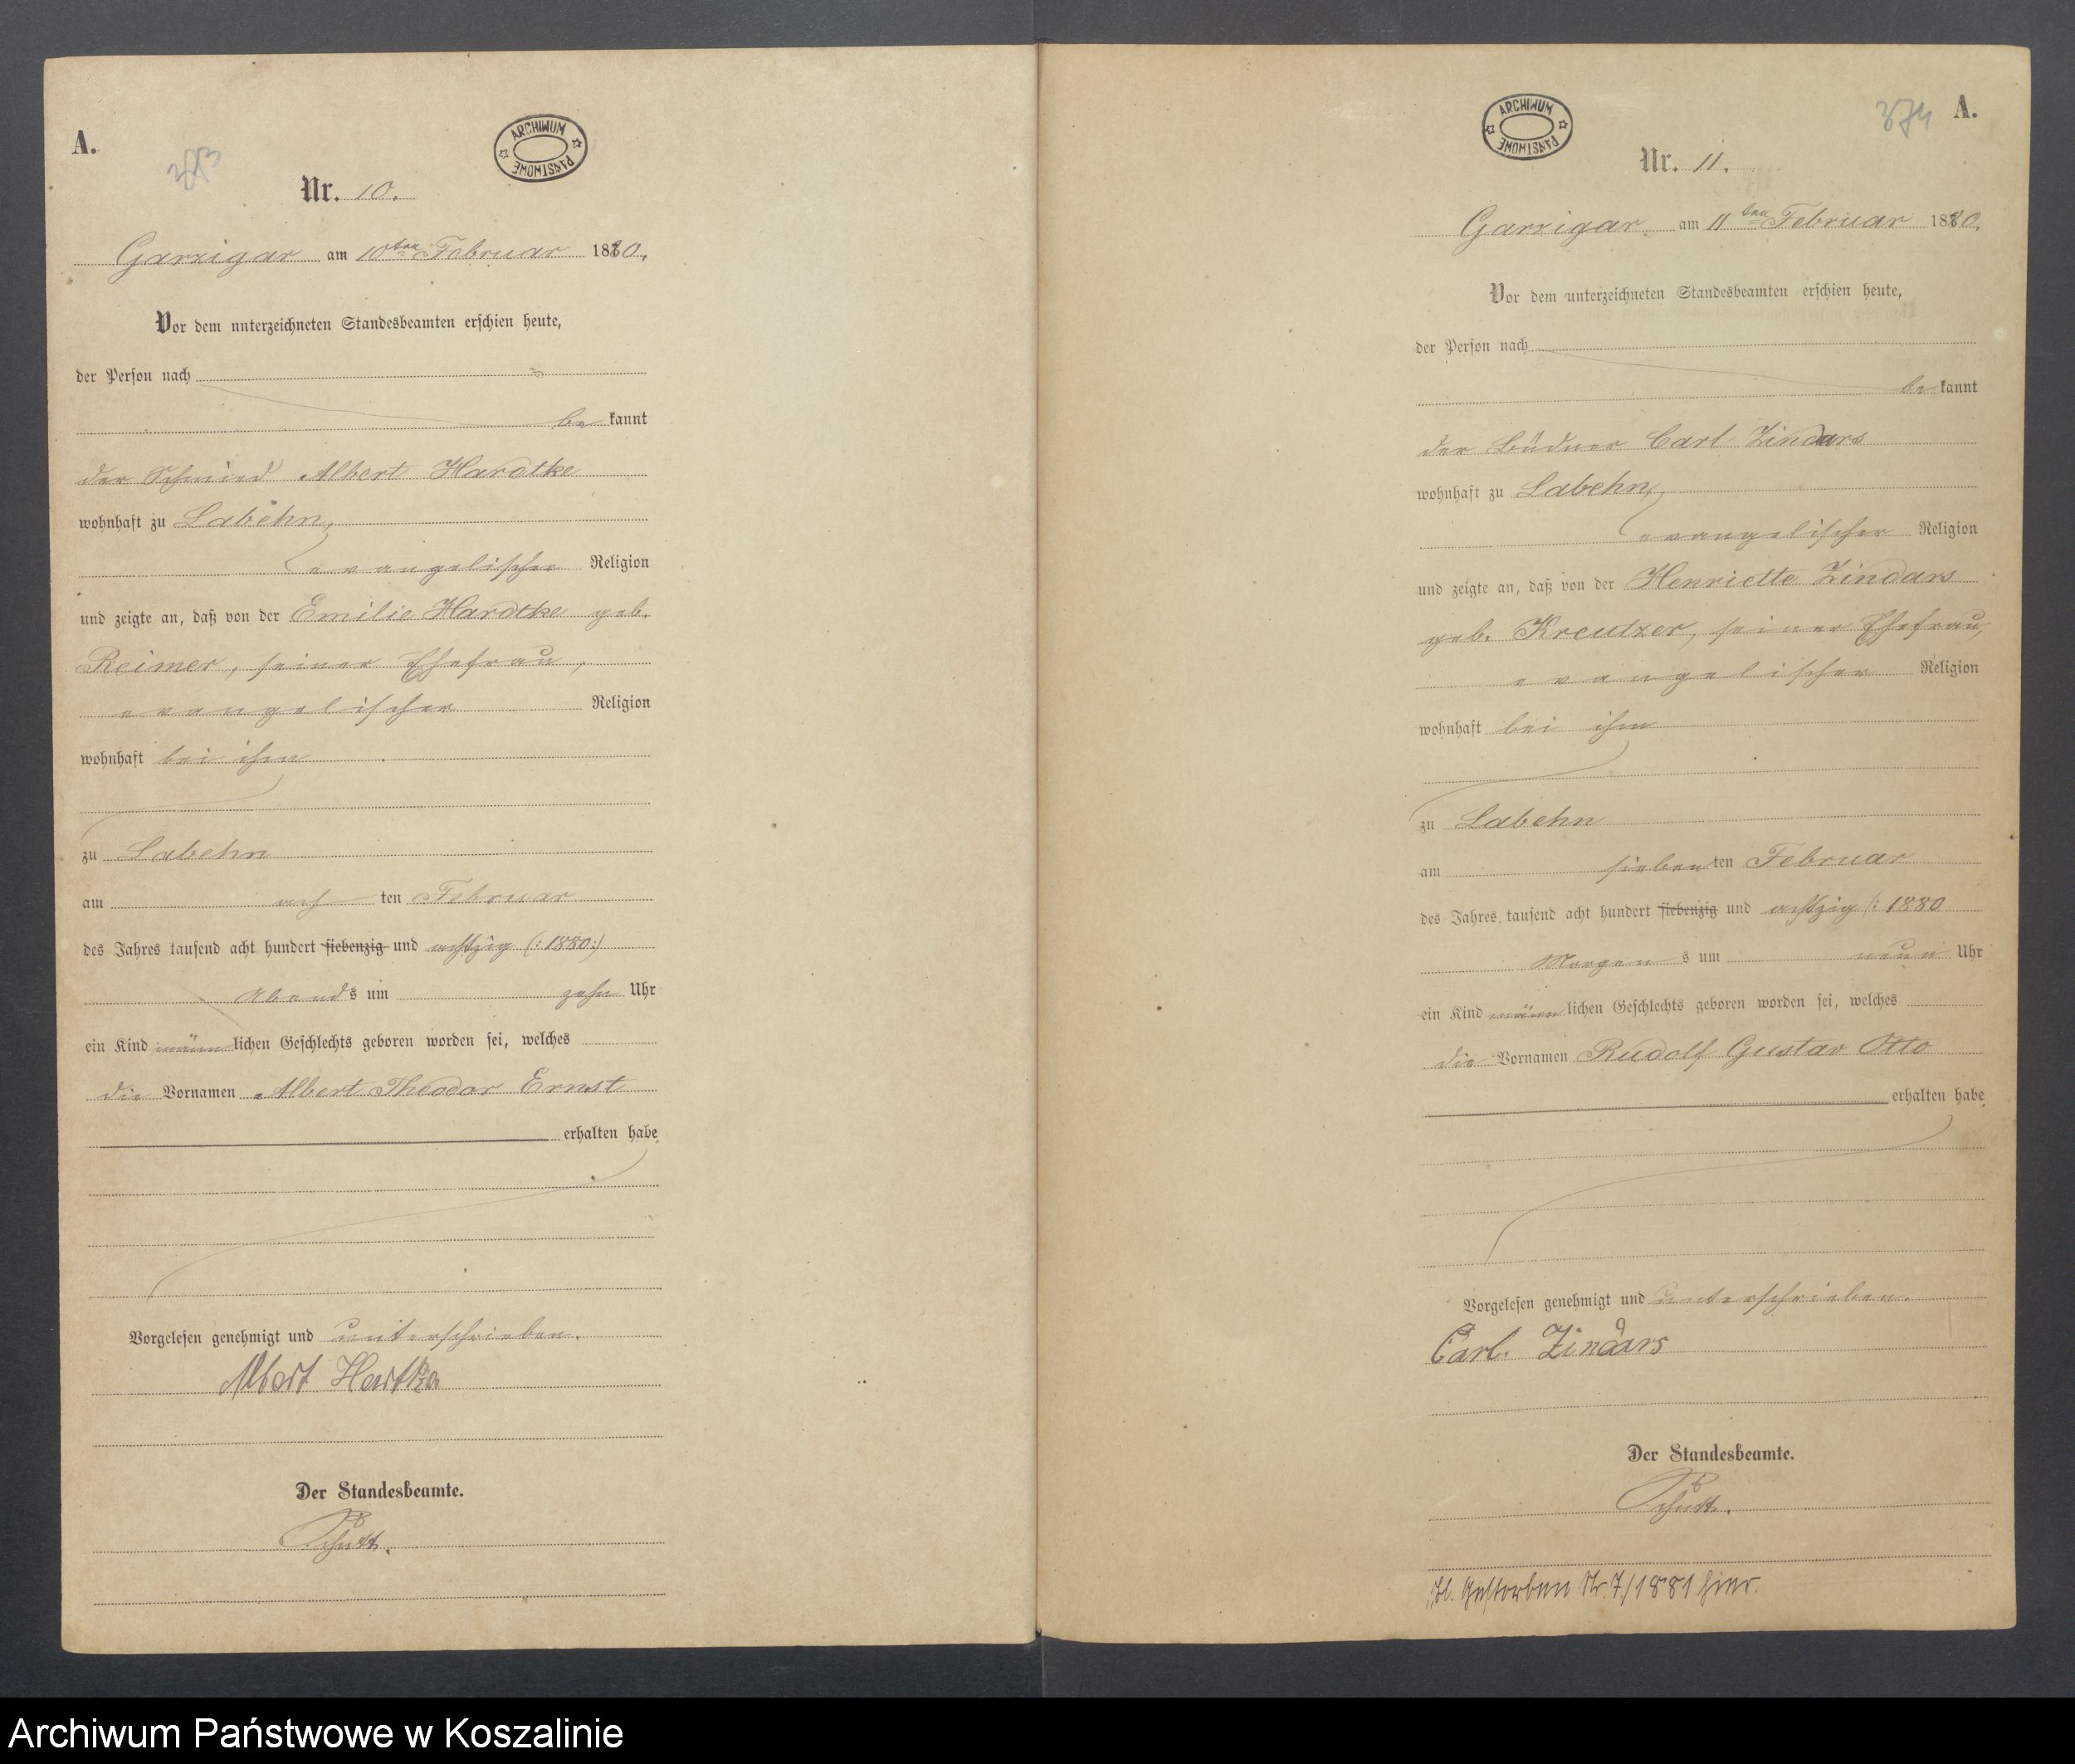 A.
373
ARCHIWUM PAŃSTWOWE
Nr. 10.
Garzigar am 10ten Februar 1880.
Vor dem unterzeichneten Standesbeamten erschien heute,
der Person nach
be kannt
der Schmied Albert Hardtke
wohnhaft zu Labehn,
evangelischer Religion
und zeigte an, daß von der Emilie Hardtke geb.
Reimer, seiner Ehefrau,
evangelischer Religion
wohnhaft bei ihm
zu Labehn
am ach ten Februar
des Jahres tausend acht hundert siebenzig und achtzig (: 1880 :)
Abends um zehn Uhr
ein Kind männlichen Geschlechts geboren worden sei, welches
die Vornamen Albert Theodor Ernst
erhalten habe
Vorgelesen genehmigt und unterschrieben.
Albert Hartke
Der Standesbeamte.
Schütt.
ARCHIWUM PAŃSTWOWE
374 A.
Nr. 11.
Garzigar am 11ten Februar 1880.
Vor dem unterzeichneten Standesbeamten erschien heute,
der Person nach
be kannt
der Büdner Carl Zindars
wohnhaft zu Labehn,
evangelischer Religion
und zeigte an, daß von der Henriette Zindars
geb. Kreutzer, seiner Ehefrau,
evangelischer Religion
wohnhaft bei ihm
zu Labehn
am sieben ten Februar
des Jahres tausend acht hundert siebenzig und achtzig (: 1880
Morgens um neun Uhr
ein Kind männlichen Geschlechts geboren worden sei, welches
die Vornamen Rudolf Gustav Otto
erhalten habe
Vorgelesen genehmigt und unterschrieben.
Carl. Zindars
Der Standesbeamte.
Schütt.
Gestorben Nr. 7/1881 hier.
Archiwum Państwowe w Koszalinie